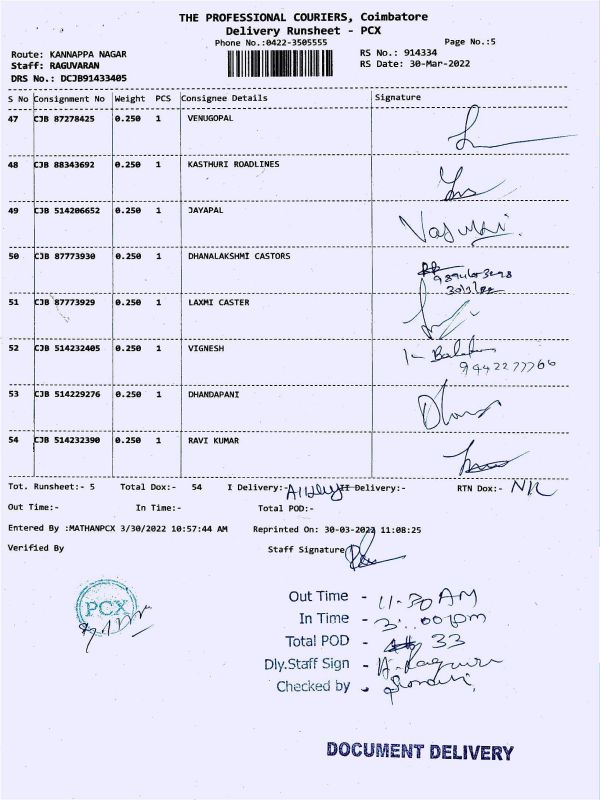 THE PROFESSIONAL COURIERS, Coimbatore
Delivery Runsheet - PCX
Phone No.:0422-3505555 Page No.:5
Route: KANNAPPA NAGAR RS No.: 914334
Staff: RAGUVARAN RS Date: 30-Mar-2022
DRS No.: DCJB91433405
S No Consignment No Weight PCS Consignee Details Signature
47 CJB 87278425 0.250 1 VENUGOPAL
48 CJB 88343692 0.250 1 KASTHURI ROADLINES
49 CJB 514206652 0.250 1 JAYAPAL
50 CJB 87773930 0.250 1 DHANALAKSHMI CASTORS
51 CJB 87773929 0.250 1 LAXMI CASTER
52 CJB 514232405 0.250 1 VIGNESH
9442277766
53 CJB 514229276 0.250 1 DHANDAPANI
54 CJB 514232390 0.250 1 RAVI KUMAR
Tot. Runsheet:- 5 Total Dox:- 54 I Delivery:- II Delivery:- RTN Dox:-
Out Time:- In Time:- Total POD:-
Entered By :MATHANPCX 3/30/2022 10:57:44 AM Reprinted On: 30-03-2022 11:08:25
Verified By Staff Signature
PCX
Out Time - 11-30 AM
In Time - 3:00pm
Total POD - 33
Dly.Staff Sign -
Checked by -
DOCUMENT DELIVERY